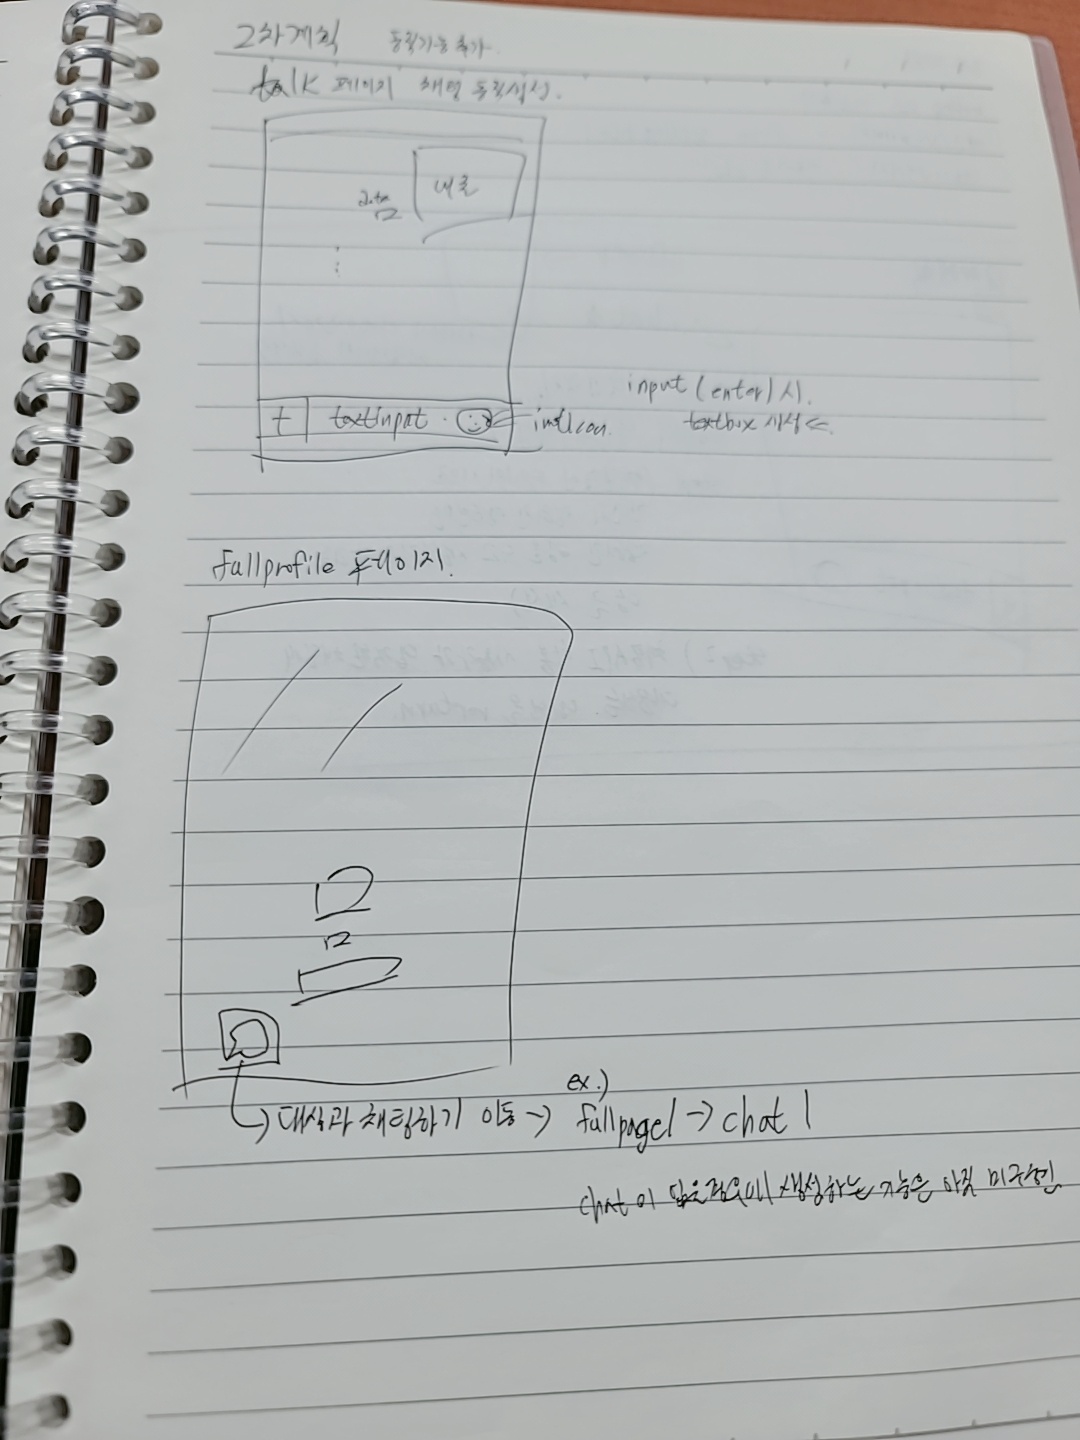 2차계획 동적기능 추가.
talk 페이지 채팅 동적생성.
내용
data
+ textinput.
input (enter) 시.
textbox 생성 <<.
fullprofile 페이지.
ex.)
대상과 채팅하기 이동 → fullpage1 → chat 1
chat이 없은경우에 생성하는 기능은 아직 미구현